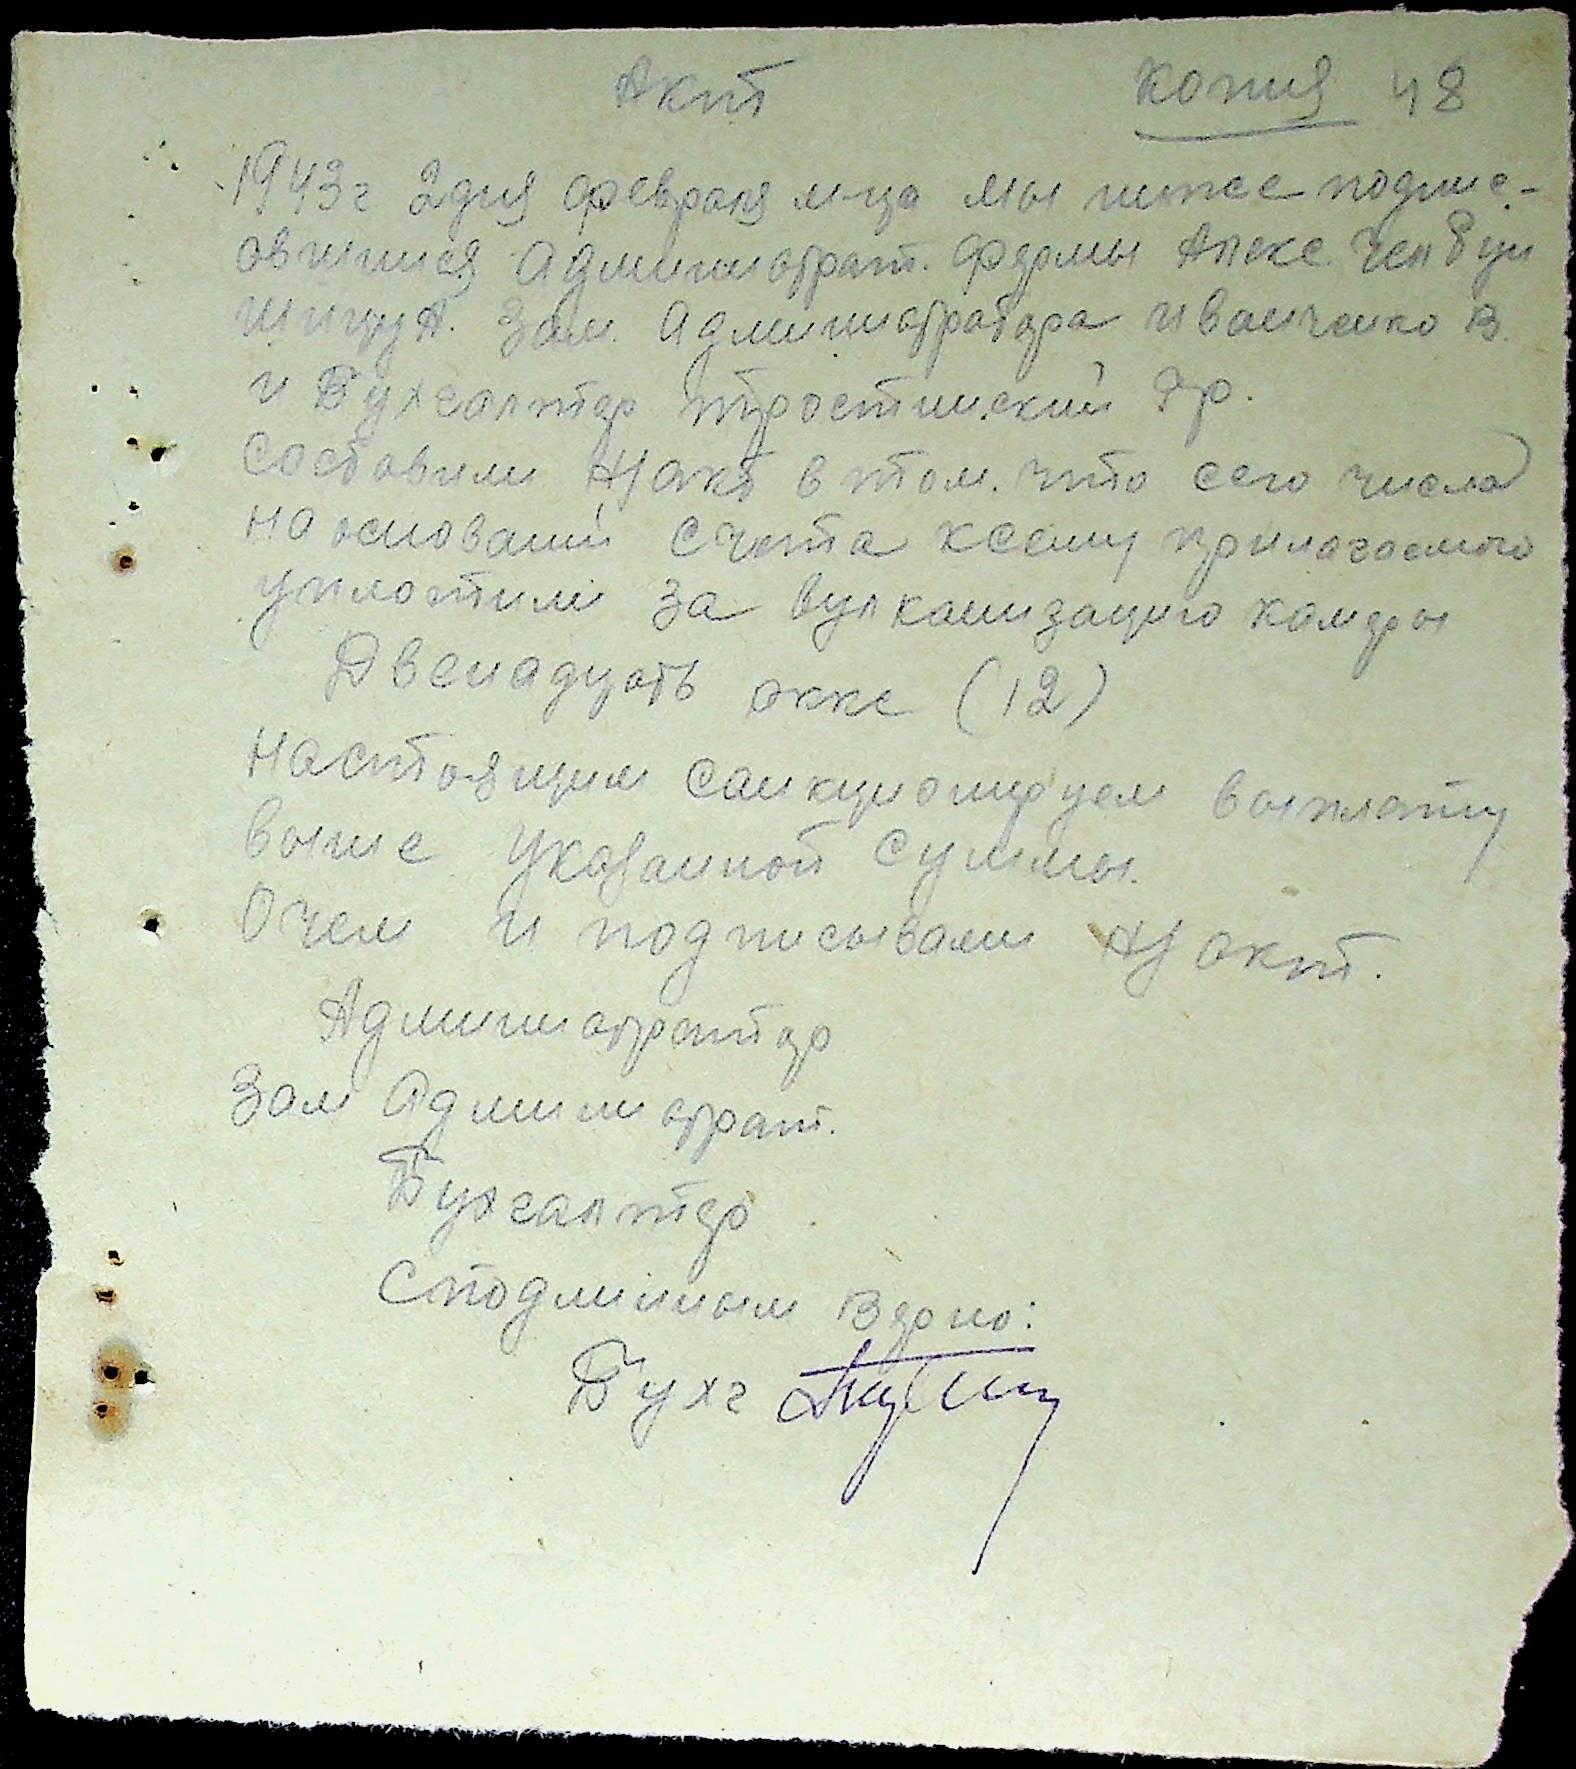 Акт Копия 48
1943г 2 дня февраля м-ца мы ниже подпис-
овшиися Администрат. фермы Алекс.
Зам. Администратора Иванченко В.
и Бухгалтер Тростинский Гр.
Составили Н/акт в том. что сего числа
на основании счета ксему прилагаемого
уплотили за вулканизацию камеры
Двенадцать окке (12)
Настоящим санкционируем выплату
выше указанной суммы.
О чем и подписываем Н/акт.
Администратор
Зам Администрат.
Бухгалтер
С подлинным Верно:
Бухг